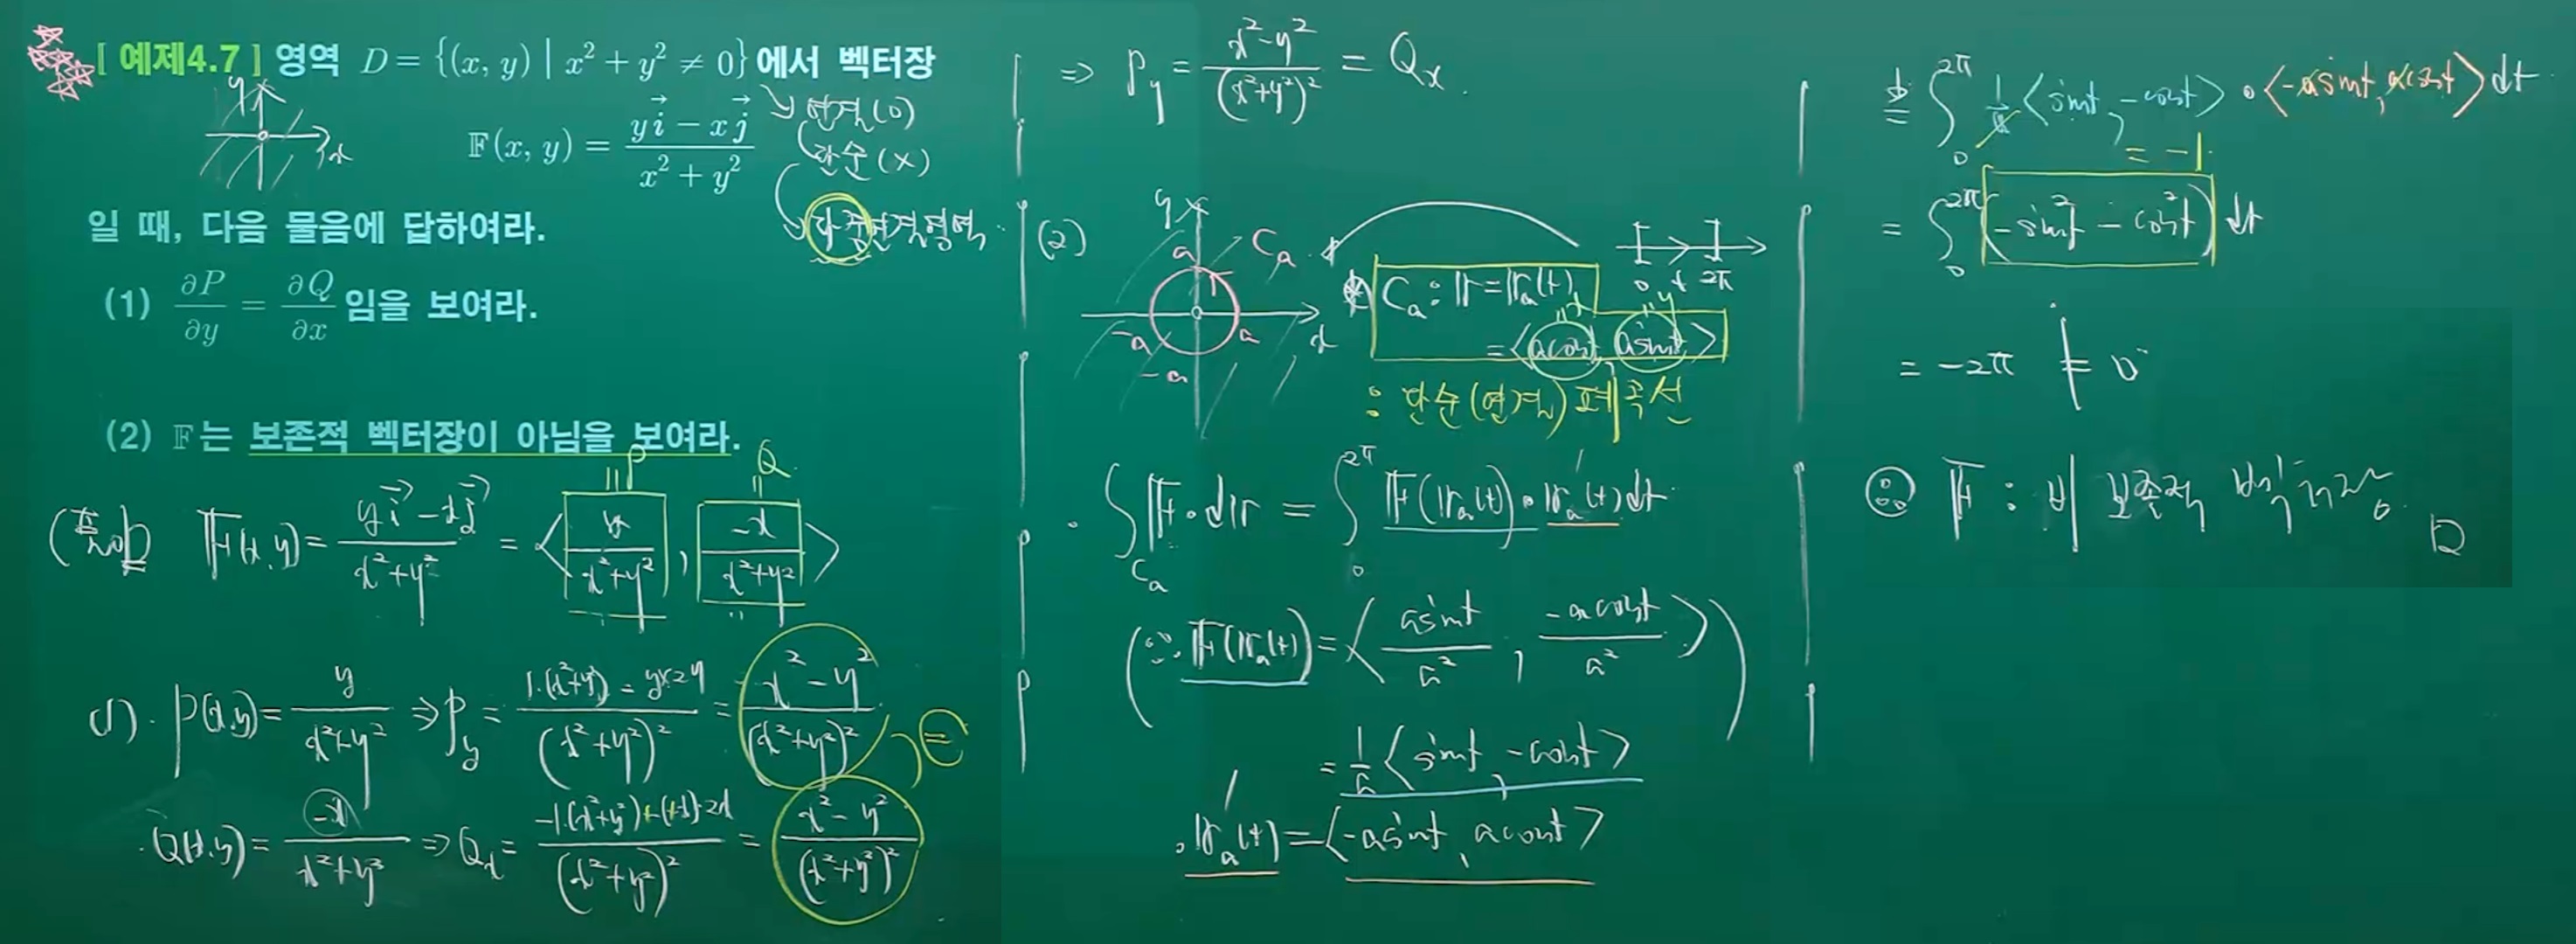 [ 예제4.7 ] 영역 D = {(x, y) | x² + y² ≠ 0}에서 벡터장
y
x
𝔽(x, y) = (y i⃗ − x j⃗) / (x² + y²)
연결(o)
단순(x)
다중연결영역.
일 때, 다음 물음에 답하여라.
(1) ∂P/∂y = ∂Q/∂x 임을 보여라.
(2) 𝔽는 보존적 벡터장이 아님을 보여라.
P Q
(풀이) 𝔽(x,y) = (y i⃗ − x j⃗)/(x²+y²) = < y/(x²+y²) , −x/(x²+y²) >
(1). P(x,y) = y/(x²+y²) ⇒ P_y = (1·(x²+y²) − y×2y)/(x²+y²)² = (x²−y²)/(x²+y²)²
=
Q(x,y) = −x/(x²+y²) ⇒ Q_x = (−1·(x²+y²)+(+x)·2x)/(x²+y²)² = (x²−y²)/(x²+y²)²
⇒ P_y = (x²−y²)/(x²+y²)² = Q_x.
(2)
y
C_a
a
−a
a
−a
x
0 t 2π
C_a : 𝕣 = 𝕣_a(t)
x y
= <a cos t, a sin t>
: 단순(연결) 폐곡선
· ∫_{C_a} 𝔽·d𝕣 = ∫₀^{2π} 𝔽(𝕣_a(t))·𝕣_a′(t) dt
(∵ 𝔽(𝕣_a(t)) = < a sin t/a² , −a cos t/a² >)
= 1/a <sin t, −cos t>
· 𝕣_a′(t) = <−a sin t, a cos t>
= ∫₀^{2π} 1/a <sin t, −cos t> · <−a sin t, a cos t> dt
= −1.
= ∫₀^{2π} (−sin²t − cos²t) dt
= −2π ≠ 0
∴ 𝔽 : 비 보존적 벡터장.